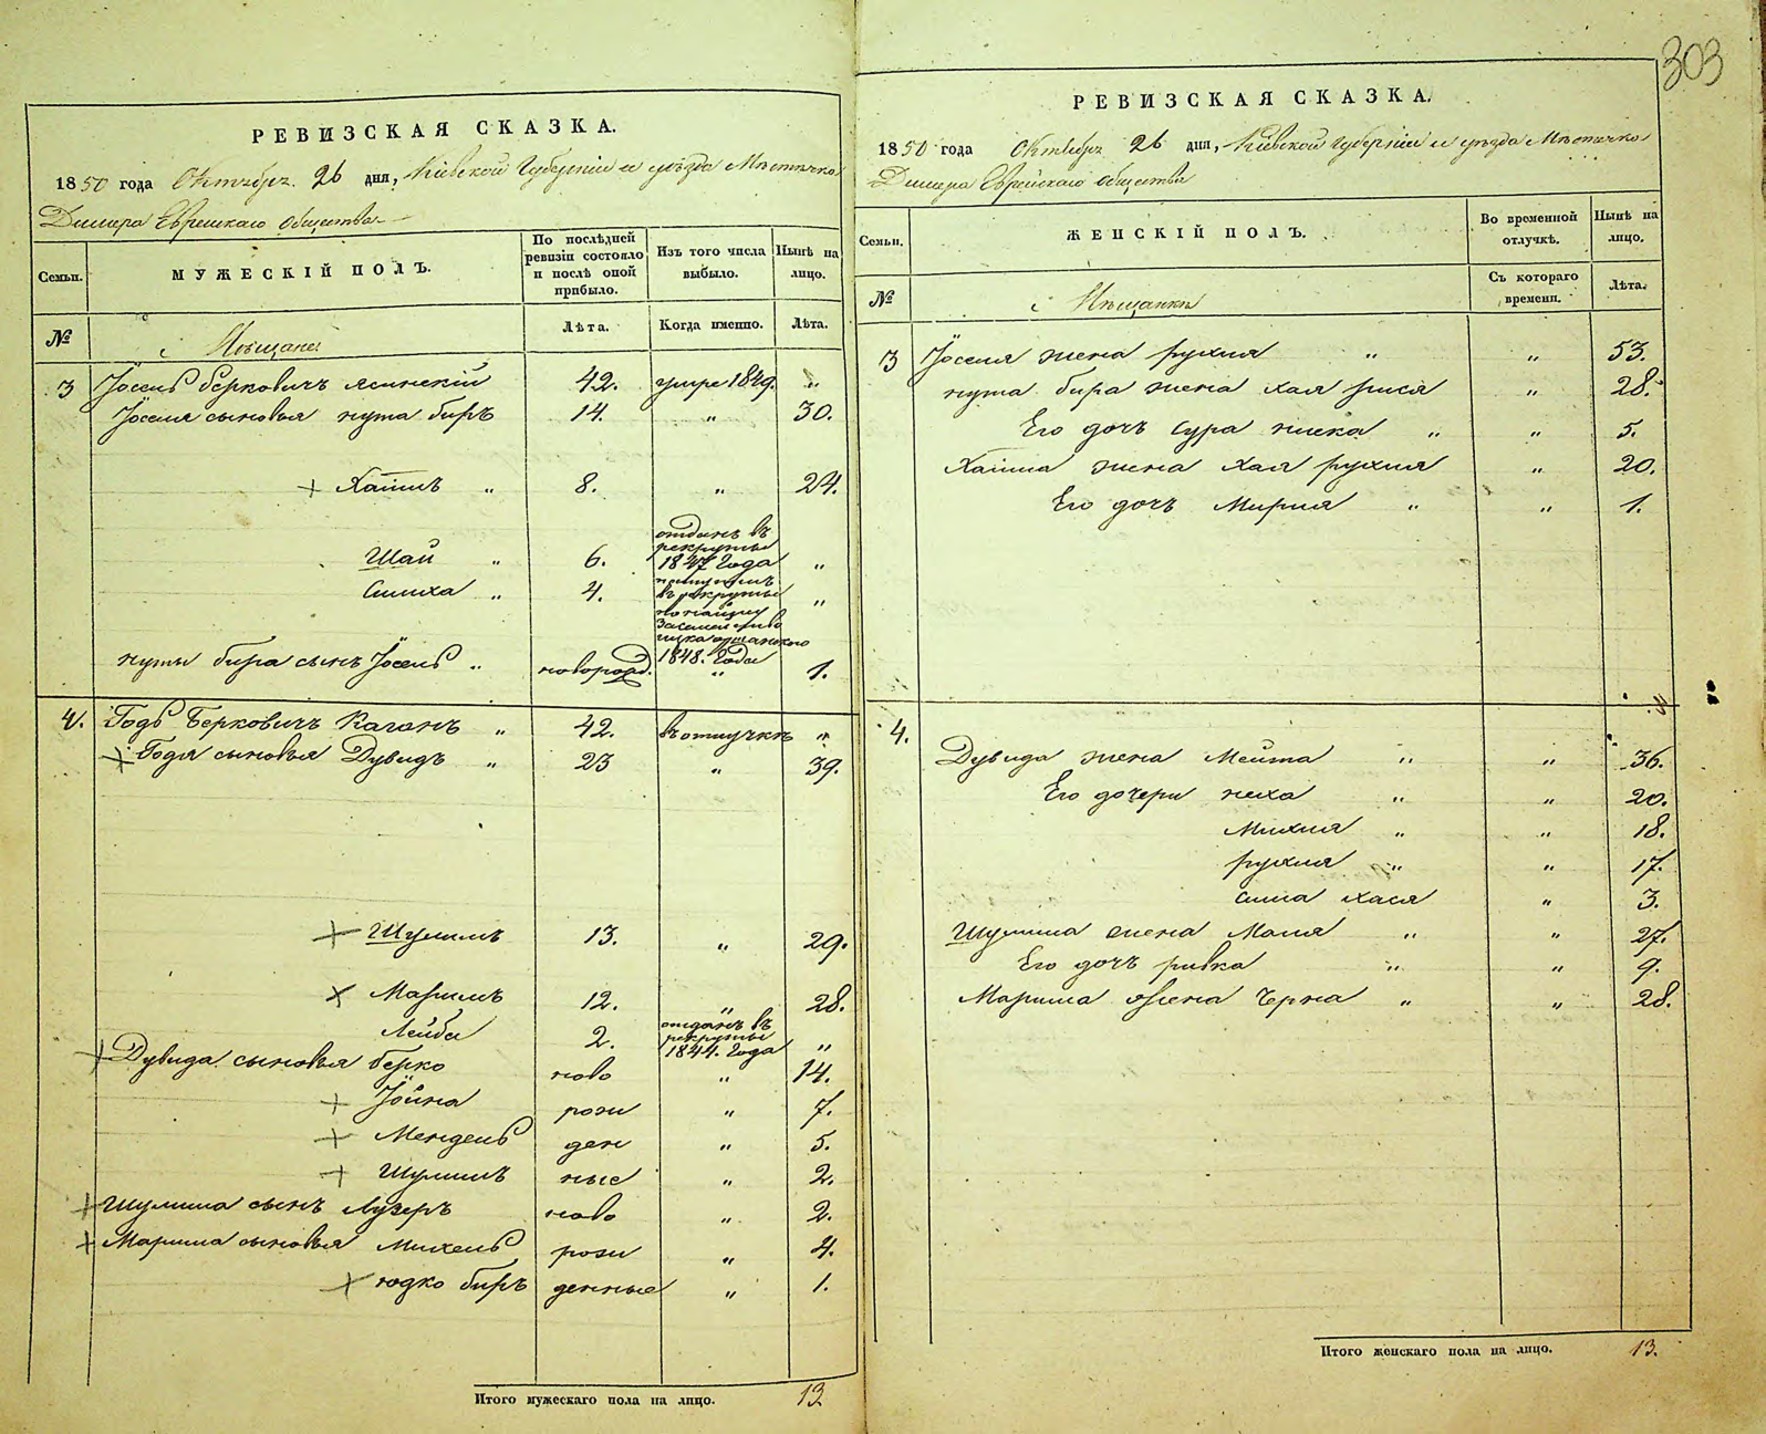 303
РЕВИЗСКАЯ СКАЗКА.
1850 года Октября 26 дня, Кіевской Губерніи и уѣзда Мѣстечка
Димера Еврейскаго общества
Семьи.
МУЖЕСКІЙ ПОЛЪ.
По послѣдней ревизіи состояло и послѣ оной прибыло.
Изъ того числа выбыло.
Нынѣ на лицо.
№
Мѣщане
Лѣта.
Когда именно.
Лѣта.
3 Іосель Берковичъ Ясинскій 42. умре 1849. "
Іоселя сыновья нута биръ 14. " 30.
+ Хаимъ " 8. " 24.
Шай " 6. отданъ въ рекруты 1847 Года "
Симха " 4. въ рекруты 1848. Года "
нуты бира сынъ Іосель " новорожд. " 1.
4. Годь Берковичъ Каганъ " 42. въ отлучкѣ "
+ Годя сыновья Дувидъ " 23 " 39.
+ Шулимъ 13. " 29.
+ Маримъ 12. " 28.
Лейба 2. отданъ въ рекруты 1844. Года "
+ Дувида сыновья берко ново " 14.
+ Іойна рож " 7.
+ Мендель ден " 5.
+ Шулимъ ные " 2.
+ Шулима сынъ Лузеръ ново " 2.
+ Марима сыновья Михель рож " 4.
+ юдко биръ денные " 1.
Итого мужескаго пола на лицо. 13
РЕВИЗСКАЯ СКАЗКА.
1850 года Октября 26 дня, Кіевской Губерніи и уѣзда Мѣстечка
Димера Еврейскаго общества
Семьи.
ЖЕНСКІЙ ПОЛЪ.
Во временной отлучкѣ.
Нынѣ на лицо.
№
Мѣщанки
Съ котораго времени.
Лѣта.
3 Іоселя жена рухля " " 53.
нута бира жена хая рися " 28.
Его дочь Сура " " 5.
Хаима жена хая рухля " 20.
Его дочь Мирля " " 1.
4.
Дувида жена Мейта " " 36.
Его дочери неха " " 20.
Михля " " 18.
рухля " " 17.
сима хася " 3.
Шулима жена Маля " " 27.
Его дочь ривка " " 9.
Марима жена Черна " " 28.
Итого женскаго пола на лицо. 13.